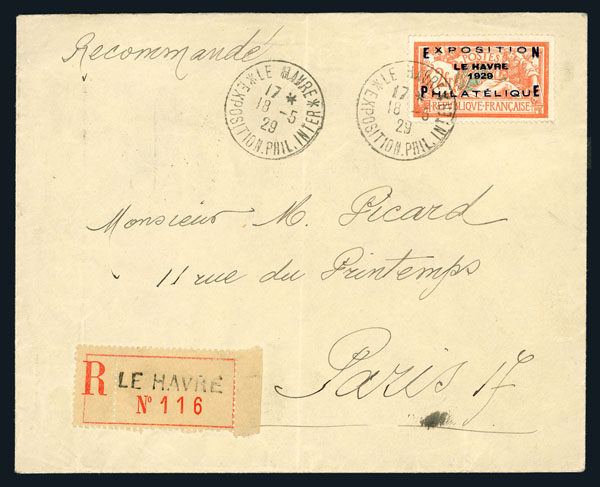 Recommandé
LE HAVRE
17 *
18 -5
29
EXPOSITION.PHIL.INTER
LE HAVRE
17 *
18 -5
29
EXPOSITION.PHIL.INTER
EXPOSITION
LE HAVRE
1929
PHILATÉLIQUE
POSTES
REPUBLIQUE·FRANÇAISE
E N
P E
Monsieur M. Picard
11 rue du Printemps
Paris 17
R LE HAVRE
Nº 116